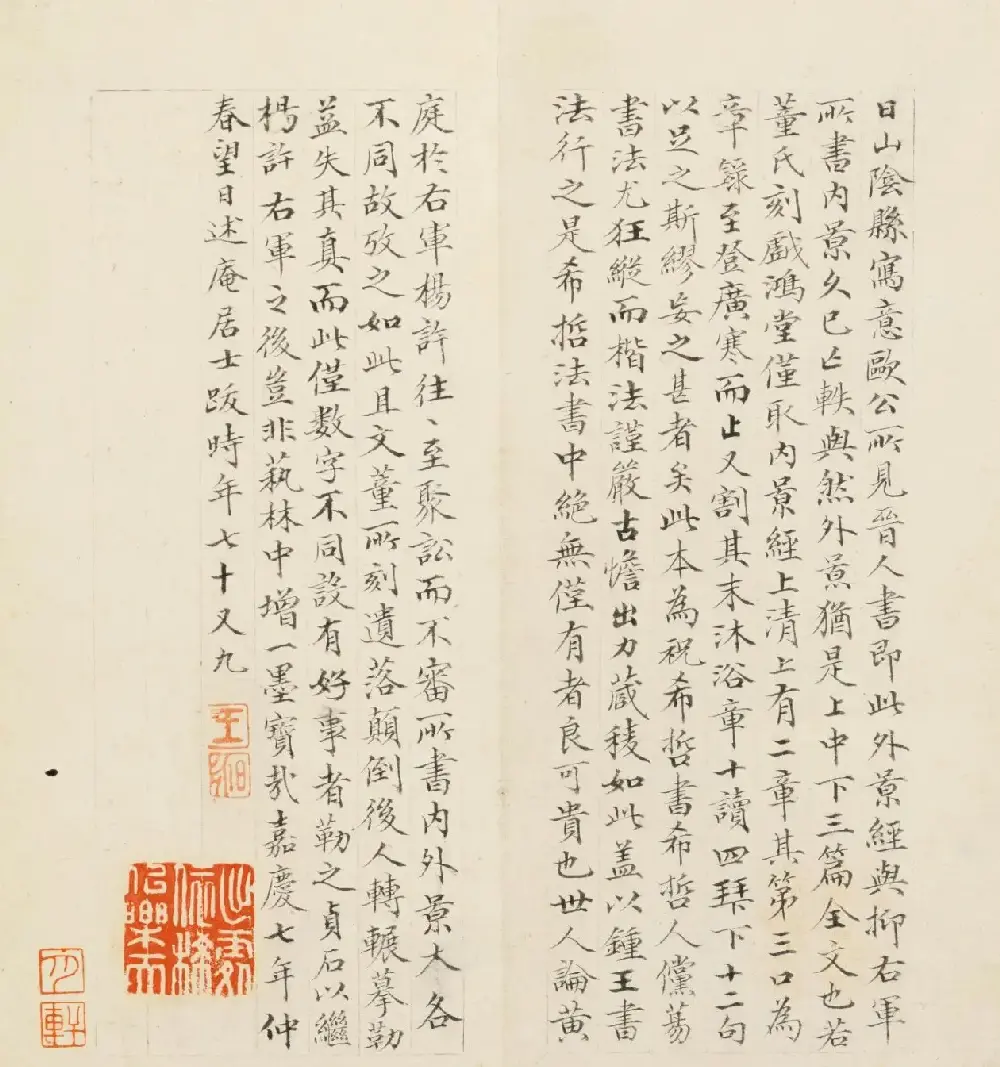 日山陰縣寫意歐公所見晉人書即此外景經與抑右軍
所書內景久已亡軼與然外景猶是上中下三篇全文也若
董氏刻戲鴻堂僅取內景經上清上有二章其第三口為
章錄至登廣寒而止又割其末沐浴章十讀四拜下十二句
以足之斯繆妄之甚者矣此本為祝希哲書希哲人儻蕩
書法尤狂縱而楷法謹嚴古憺出力蔵稜如此盖以鍾王書
法行之是希哲法書中絕無僅有者良可貴也世人論黃
庭於右軍楊許往々至聚訟而不審所書內外景大各
不同故攷之如此且文董所刻遺落顛倒後人轉輾摹勒
益失其真而此僅數字不同設有好事者勒之貞石以繼
楊許右軍之後豈非蓺林中增一墨寶哉嘉慶七年仲
春望日述庵居士跋時年七十又九
王昶